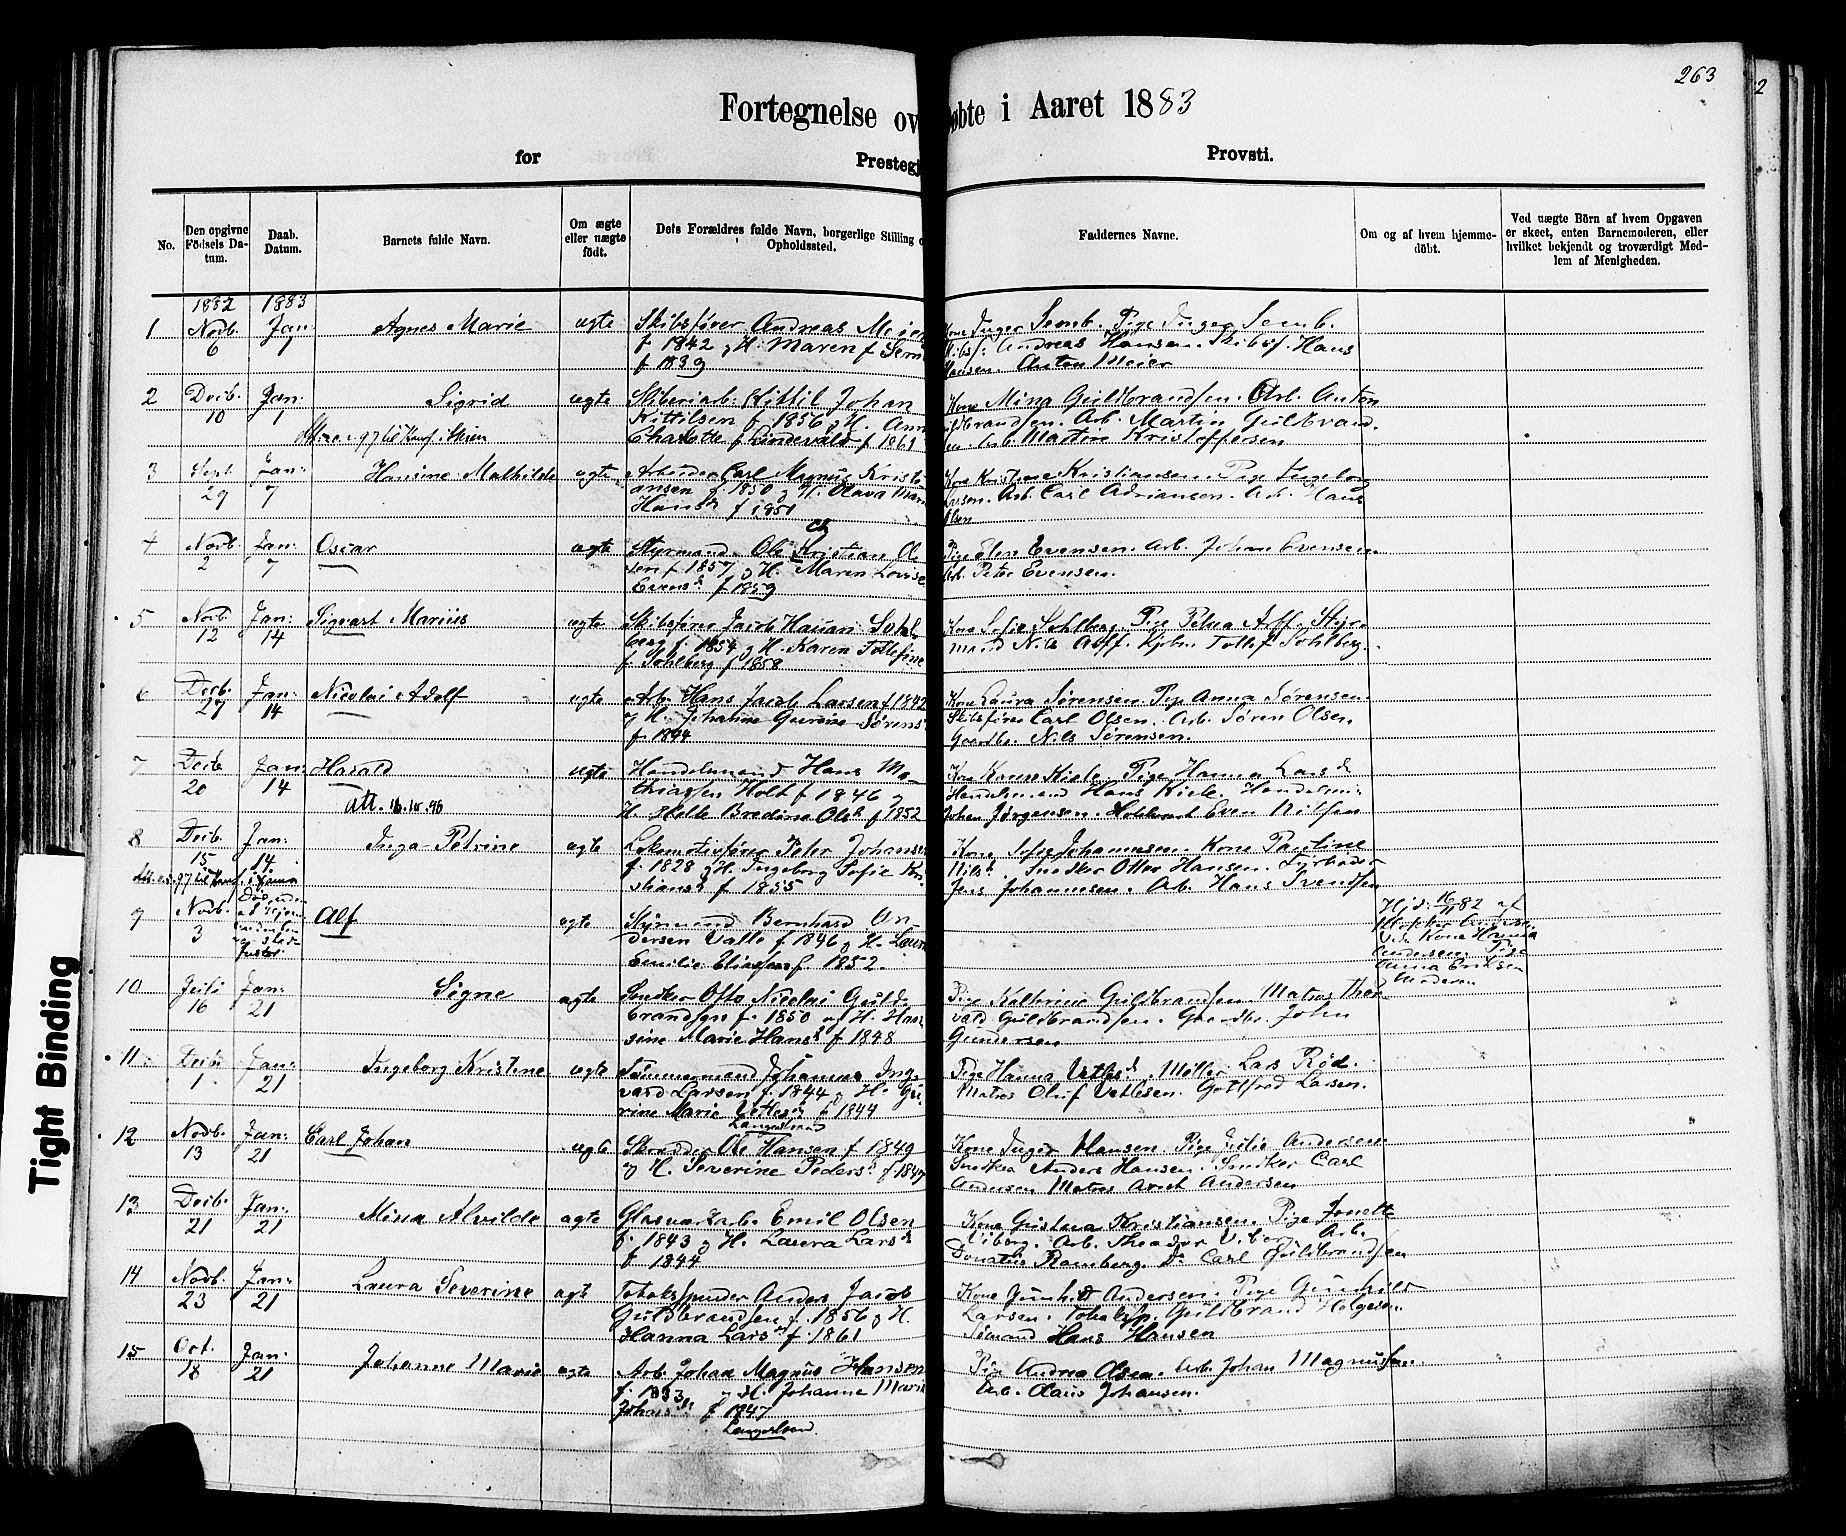 263
2
Fortegnelse ov øbte i Aaret 1883
for Prestegj Provsti.
No. Den opgivne Fødsels Datum. Daab. Datum. Barnets fulde Navn. Om ægte eller uægte født. Dets Forældres fulde Navn, borgerlige Stilling o Opholdssted. Faddernes Navne. Om og af hvem hjemmedöbt. Ved uægte Börn af hvem Opgaven er skeet, enten Barnemoderen, eller hvilket bekjendt og troværdigt Medlem af Menigheden.
1882 1883
1 Novb. 6 Jan: 7 Agnes Marie ægte Skibsfører Andreas Meier
f 1842 og H. Maren f Sem
f 1839
Kone Inger Semb. Pige Inger Semb.
Skibsf: Andreas Hansen. Skibsf. Hans
Hansen. Anton Meier
2 Decb. 10 Jan: 1 Sigrid ægte Kittil Johan
Kittilsen f 1856 og H. Ann
Charlotte f. Lindevald f 1861
Kone Mina Guldbrandsen. Arb. Anton
Arb. Martin Guldbrand
sen. Arb. Martin Kristoffersen
3 Sept. 29 Jan: 7 Hansine Mathilde ægte Arbeider Carl Magnus Kristi
ansen f. 1850 og H. Olava Mar
Hansd. f 1851
Kone Kristine Kristiansen. Pige Ingeborg
Larsen. Arb. Carl Adriansen. Arb. Hans
Olsen
4 Novb. 2 Jan: 7 Oscar ægte Ch
Styrmand Ole Kristian Ol
sen f 1857 og H. Maren Lovise
Evensd. f 1859
Pige Elen Evensen. Arb. Johan Evensen.
Arb. Peter Evensen.
5 Nov. 12 Jan: 14 Sigvart Marius ægte Skibsfører Jacob Hauan Sohl
berg f. 1854 og H. Karen Tollefine
f. Sohlberg f 1858
Kone Sofie Sohlberg. Pige Petra Aff. Styr
mand Nils Aoff. Kjbm. Tollef Sohlberg.
6 Decb. 27 Jan: 14 Nicolai Adolf ægte Arb. Hans Jacob Larsen f 1842
og H. Johanne Gurine Sørens
f. 1844
Kone Laura Sørensen Pige Anna Sørensen.
Skibsfører Carl Olsen. Arb. Søren Olsen.
Gaardbr. Nils Sørensen.
7 Decb 20 Jan: 14 Harald ægte Handelsmand Hans Ma
thiassen Holt f 1846 og
H. Helle Bredine Olsd. f 1852
Att. 16.10.96
Kone Karen Kiele. Pige Hanna Larsd
Handelsmand Hans Kiele. Handelsm:
Johan Jørgensen. Even Nilsen
8 Decb. 15 Jan: 14 Inga Petrine ægte Lokomotivfører Peter Johans
f. 1828 og H. Ingeborg Sofie Kri
stiansd. f 1855
Kone Sofie Johannesen. Kone Pauline
Nilsd. Snedker Otter Hansen. Fyrbøder
Jens Johannesen. Arb. Hans Svendsen
9 Novb. 3 Alf ægte Styrmand Bernhard An
dersen Valle f 1846 og H. Laura
Emilie Eliassen f. 1852.
Hjd: 16/11 82 af
Kone Hanna
Andersen. Pige
Anna Eriksen
Moderen
10 16 Jan: 21 Signe ægte Snedker Otto Nicolai Guld
brandsen f. 1850 og H. Han
sine Marie Hansd. f 1848
Pige Kathrine Guldbrandsen. Matros Thor
vald Guldbrandsen. Gaardbr. John
Gundersen
11 Decb. 1 Jan: 21 Ingeborg Kristine ægte Tømmermand Johannes Ing
vard Larsen f. 1844 og H. Gu
rine Marie Vetlesd. f 1844
Langesund
Pige Hanna Vetlesd. Møller Lars Rød.
Matros Oluf Vetlesen. Gottfred Larsen.
12 Novb. 13 Jan: 21 Carl Johan ægte Skrædder Ole Hansen f 1849
og H. Severine Pedersd. f 1849
Kone Inger Hansen. Pige Julie Andersen.
Snedker Anders Hansen. Snedker Carl
Andersen Matros Arent Andersen
13 Decb. 21 Jan: 21 Mina Alvilde ægte Glasværkarb. Emil Olsen
f. 1843 og H. Laura Larsd.
f 1844
Kone Gustava Kristiansen. Pige Jonette
Viborg. Arb. Theodor Viborg. Arb.
Donatus Ramberg. Do. Carl Guldbrandsen
14 Novb. 23 Jan: 21 Laura Severine ægte Tobakspinder Anders Jacob
Guldbrandsen f. 1856 og H.
Hanna Larsd. f. 1861
Kone Gunhild Andersen. Pige Gunhild
Larsen. Tobaksp. Guldbrand Helgesen
Sømand Hans Hansen
15 Oct. 18 Jan: 21 Johanne Marie ægte Arb. Johan Magnus Hansen
f. 1853 og H. Johanne Marie
Johansd. f 1847
Langesund.
Pige Andrea Olsen. Arb. Johan Magnussen.
Arb. Claus Johansen.
Tight Binding